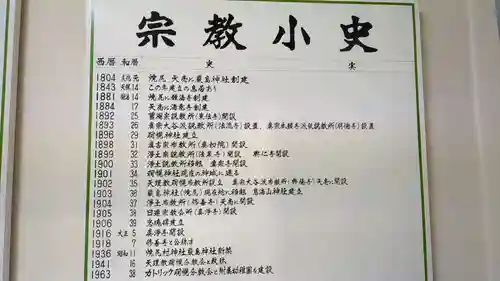 宗教小史
西暦 和暦 史 実
1804 文化 元 焼尻 天売に厳島神社創建
1843 天保 14 この年建立の鳥居あり
1881 明治 14 焼尻に龍海寺創建
1884 17 天売に海竜寺創建
1892 25 曹洞宗説教所(東伝寺)開設
1893 26 真宗大谷派説教所(法流寺)設置、真宗本願寺派説教所(明徳寺)設置
1896 29 羽幌神社建立
1898 31 真言宗布教所(真如院)開設
1899 32 浄土宗説教所(法泉寺)開設
1900 33 浄土説教所移転
1901 34 羽幌神社現在の神域に遷る
1902 35 天理教羽幌布教所設立 天売に開設
1903 36 厳島神社(焼尻)現在地に移転 神社建立
1904 37 浄土布教所(修善寺)天売に開設
1905 38 日蓮宗教会所(真浄寺)開設
1906 39 忠魂碑建立
1916 大正 5 真浄寺開設
1918 7 修善寺と公称す
1936 昭和 11 焼尻村神社厳島神社新築
1941 16 天理教羽幌分教会と改称
1963 38 カトリック羽幌分教会と附属幼稚園を建設